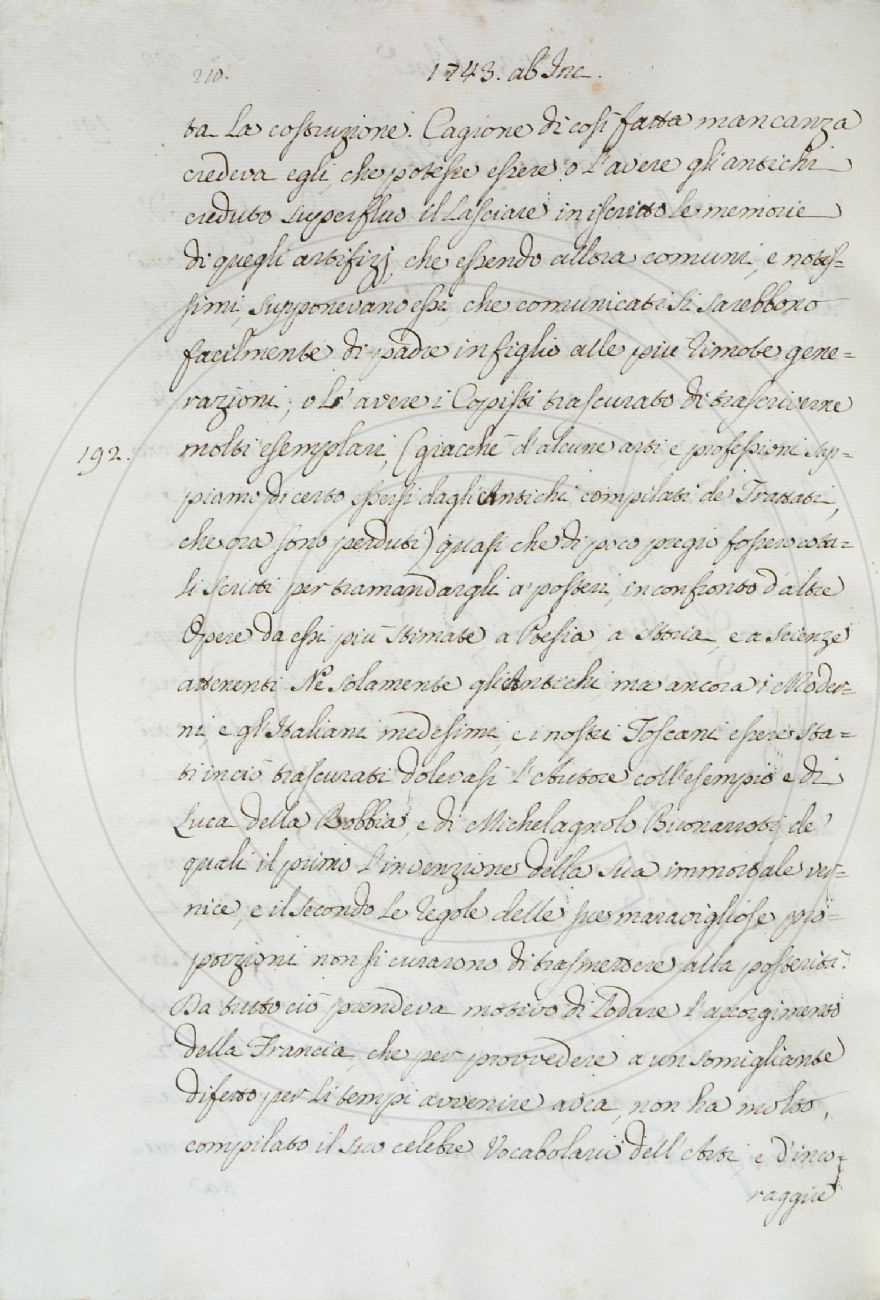 210.
1743. ab Inc.
ta la costruzione. Cagione di così fatta mancanza
credeva egli, che potesse essere o l'avere gli antichi
creduto superfluo il lasciare in iscritto le memorie
di quegli artifizj, che essendo allora comuni, e notis=
simi, supponevano essi, che comunicati si sarebbono
facilmente di padre in figlio alle più rimote gene=
razioni; o l'avere i Copisti trascurato di trascriverne
192.
molti esemplari, (giacchè d'alcune arti, e professioni sap=
piamo di certo essersi dagli Antichi compilati de' Trattati,
che ora sono perduti) quasi che di poco pregio fossero cota=
li scritti per tramandargli a' posteri, in confronto d'altre
Opere da essi più stimate, a Poesia, a Storia, e a Scienze
attenenti. Nè solamente gli Antichi, ma ancora i Moder=
ni, e gl'Italiani medesimi, e i nostri Toscani essere sta=
ti in ciò trascurati dolevasi l'Autore coll'esempio e di
Luca della Robbia, e di Michelagnolo Buonarroti, de'
quali il primo l'invenzione della sua immortale ver=
nice, e il secondo le regole delle sue maravigliose pro=
porzioni non si curarono di trasmettere alla posterità.
Da tutto ciò prendeva motivo di lodare l'accorgimento
della Francia, che per provvedere a un somigliante
difetto per li tempi avvenire avea, non ha molto,
compilato il suo celebre Vocabolario dell'Arti, e d'inco=
raggire